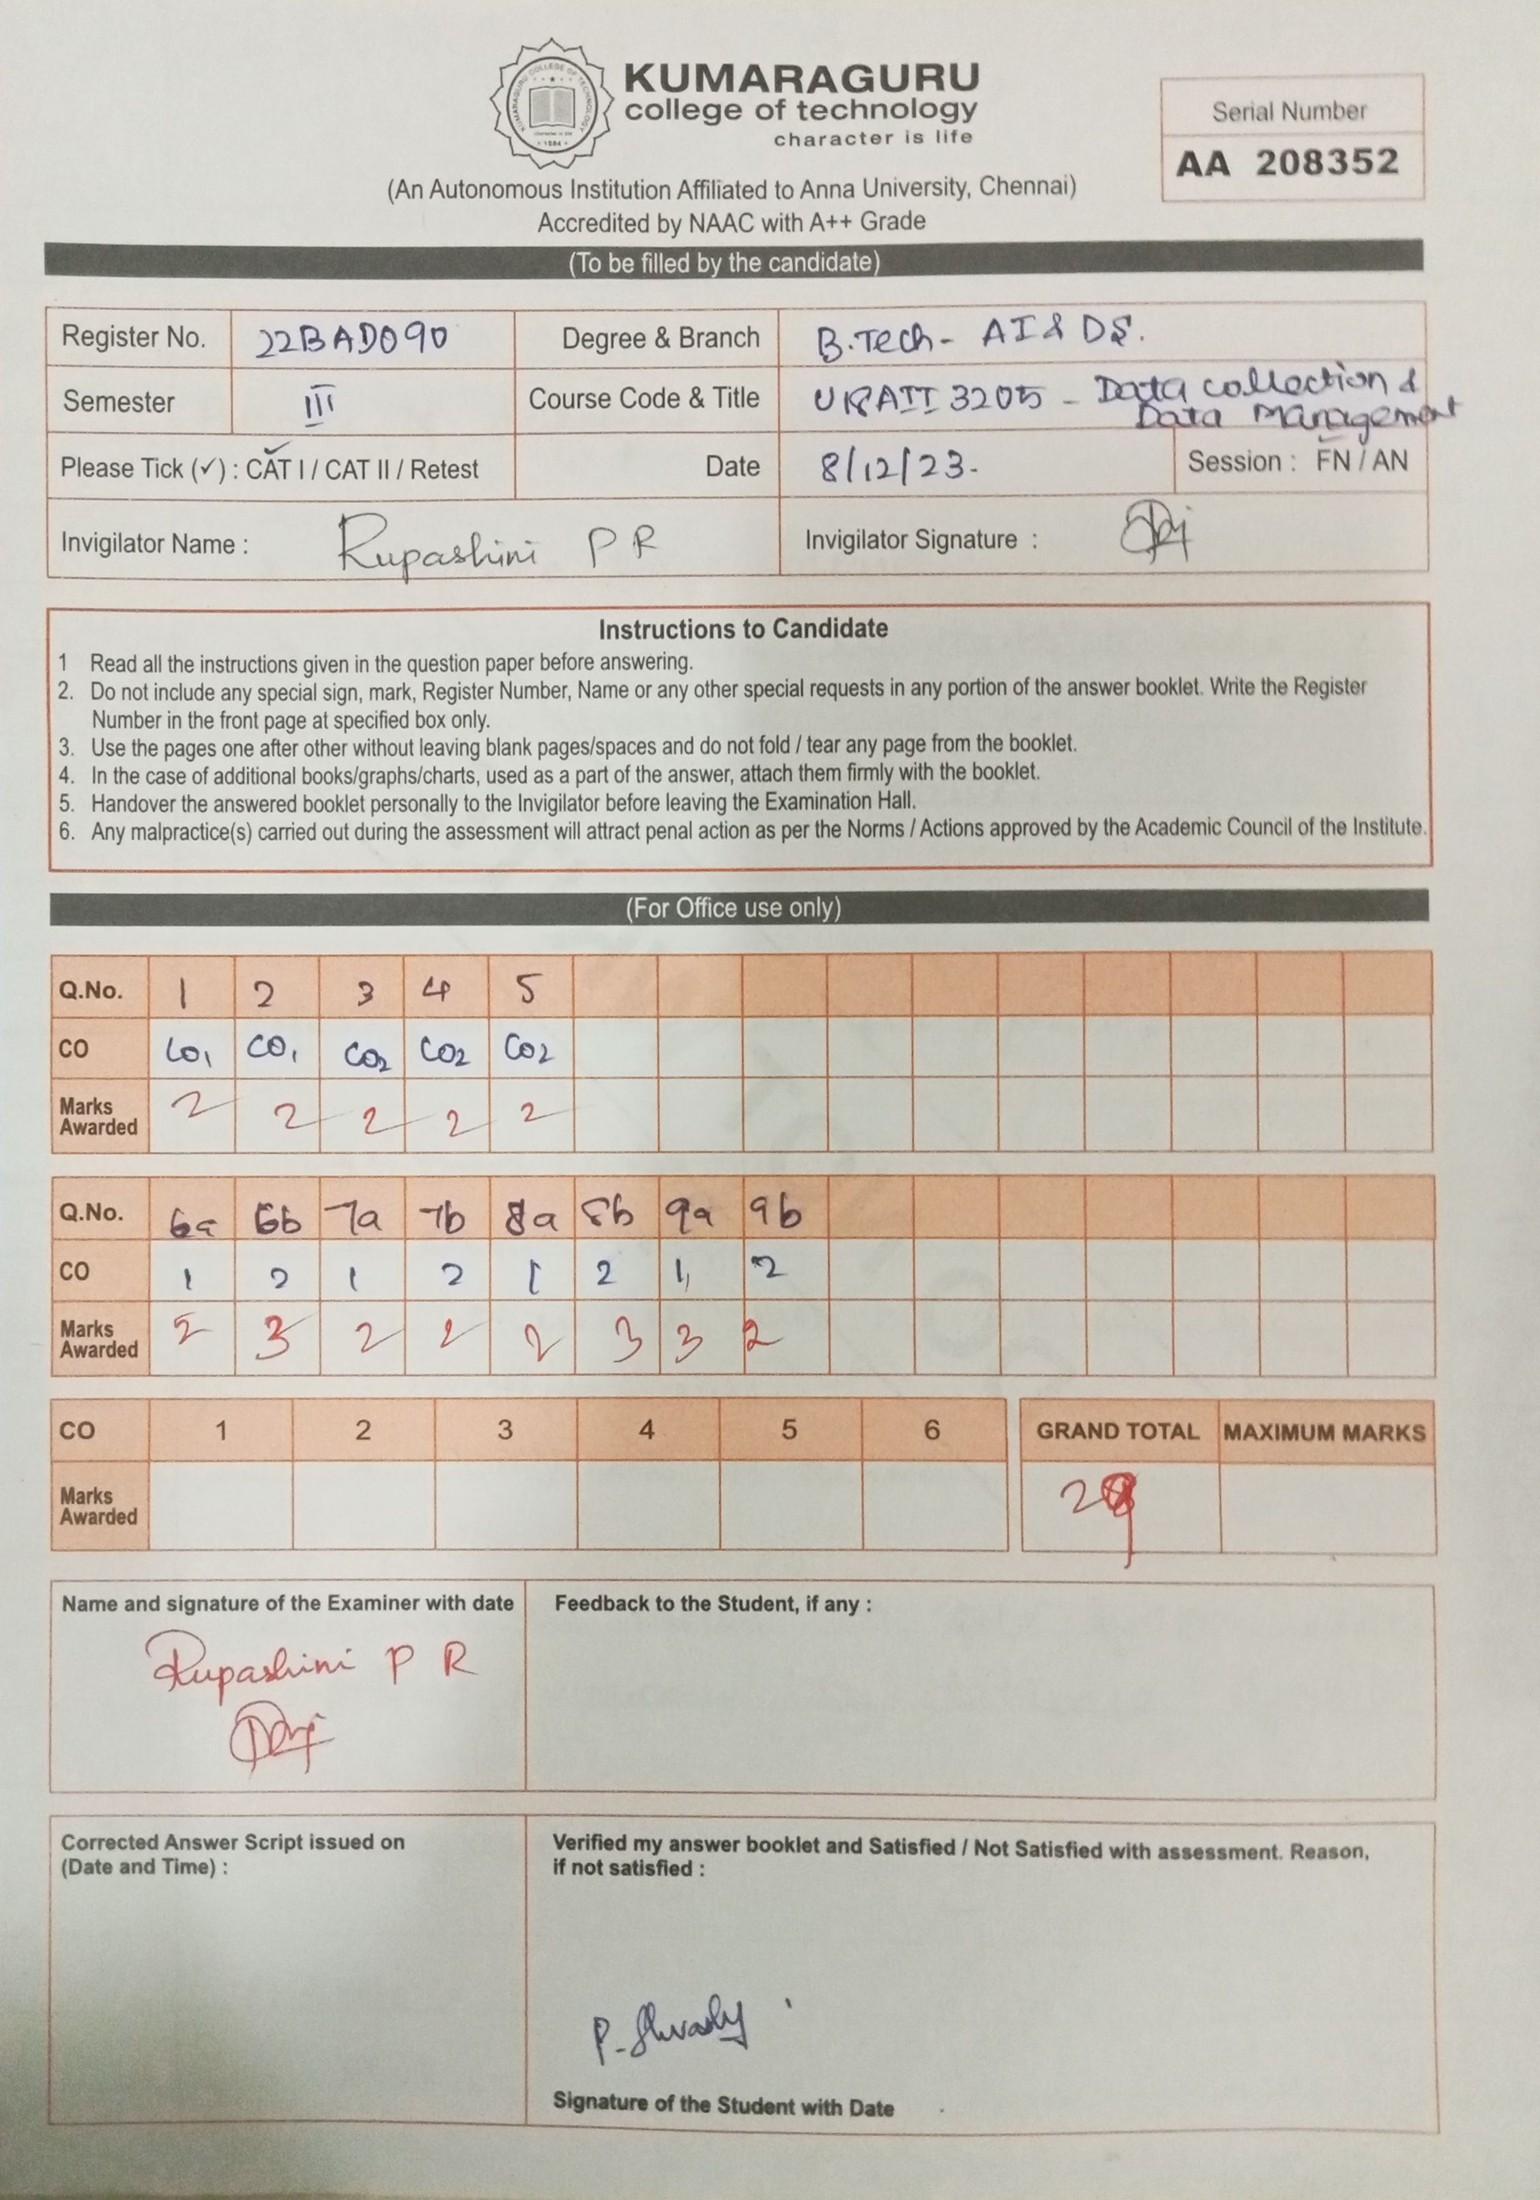 KUMARAGURU
college of technology
character is life
Serial Number
AA 208352
(An Autonomous Institution Affiliated to Anna University, Chennai)
Accredited by NAAC with A++ Grade
(To be filled by the candidate)
Register No. 22BAD090 Degree & Branch B.Tech- AI & DS.
Semester III Course Code & Title 3205 - Data collection & Data Management
Please Tick (✓) : CAT I / CAT II / Retest Date 8/12/23. Session : FN / AN
Invigilator Name : Rupashini P R Invigilator Signature :
Instructions to Candidate
1 Read all the instructions given in the question paper before answering.
2. Do not include any special sign, mark, Register Number, Name or any other special requests in any portion of the answer booklet. Write the Register
Number in the front page at specified box only.
3. Use the pages one after other without leaving blank pages/spaces and do not fold / tear any page from the booklet.
4. In the case of additional books/graphs/charts, used as a part of the answer, attach them firmly with the booklet.
5. Handover the answered booklet personally to the Invigilator before leaving the Examination Hall.
6. Any malpractice(s) carried out during the assessment will attract penal action as per the Norms / Actions approved by the Academic Council of the Institute.
(For Office use only)
Q.No. 1 2 3 4 5
CO CO1 CO1 CO2 CO2 CO2
Marks Awarded 2 2 2 2 2
Q.No. 6a 6b 7a 7b 8a 8b 9a 9b
CO 1 2 1 2 1 2 1 2
Marks Awarded 2 3 2 2 2 3 3 2
CO 1 2 3 4 5 6 GRAND TOTAL MAXIMUM MARKS
Marks Awarded 29
Name and signature of the Examiner with date Feedback to the Student, if any :
Rupashini P R
Corrected Answer Script issued on
(Date and Time) :
Verified my answer booklet and Satisfied / Not Satisfied with assessment. Reason,
if not satisfied :
Signature of the Student with Date